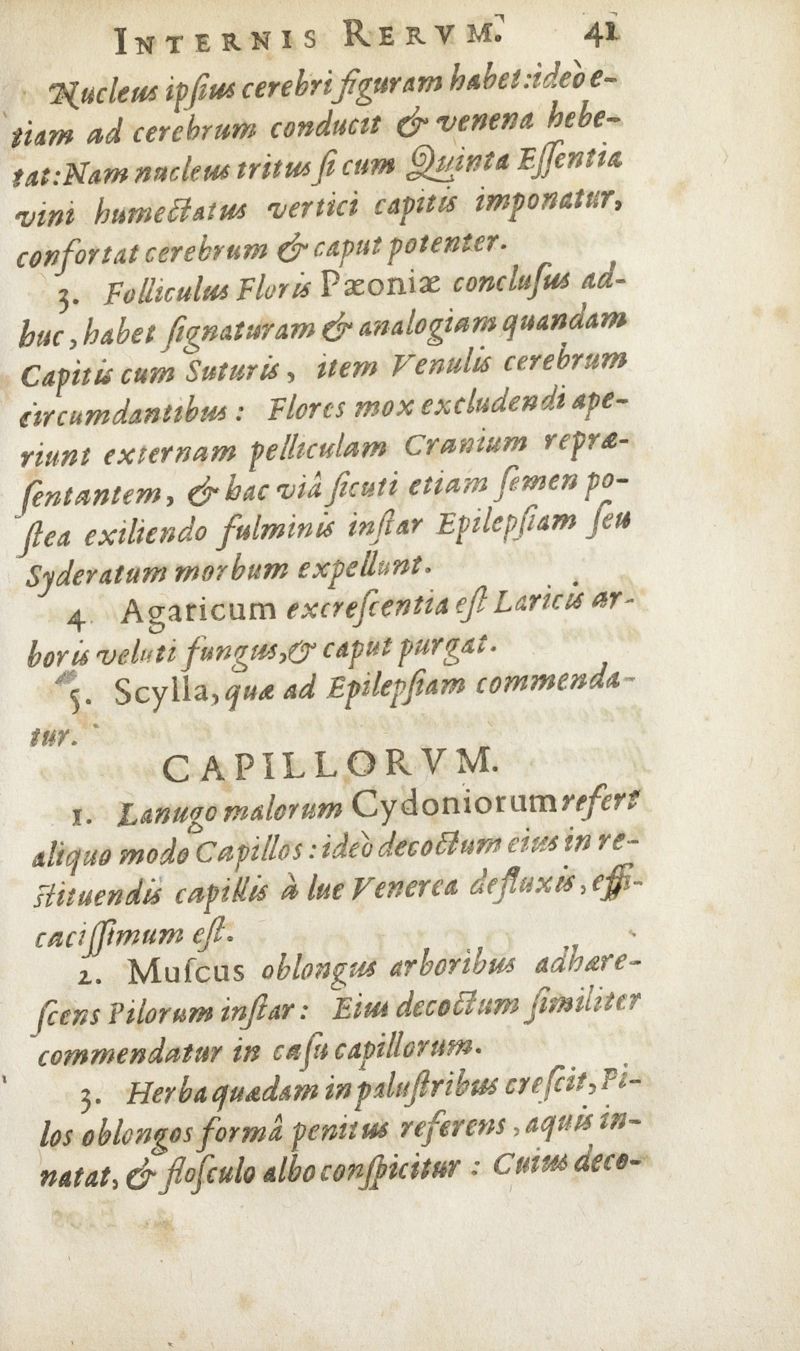 INTERNIS RERVM. 41
Nucleus ipſius cerebri figuram habet: ideò e-
tiam ad cerebrum conducit & venena hebe-
tat: Nam nucleus tritus ſi cum Quinta Eſſentia
vini humectatus vertici capitis imponatur,
confortat cerebrum & caput potenter.
3. Folliculus Floris Pæoniæ concluſus ad-
huc, habet ſignaturam & analogiam quandam
Capitis cum Suturis, item Venulis cerebrum
circumdantibus: Flores mox excludendi ape-
riunt externam pelliculam Cranium repræ-
ſentantem, & hac viâ ſicuti etiam ſemen po-
ſtea exiliendo fulminis inſtar Epilepſiam ſeu
Syderatum morbum expellunt.
4. Agaricum excreſcentia eſt Laricis ar-
boris veluti fungus, & caput purgat.
5. Scylla, quæ ad Epilepſiam commenda-
tur.
CAPILLORVM.
1. Lanugo malorum Cydoniorum refert
aliquo modo Capillos: ideò decoctum eius in re-
ſtituendis capillis à lue Venerea defluxis, effi-
caciſſimum eſt.
2. Muſcus oblongus arboribus adhære-
ſcens Pilorum inſtar: Eius decoctum ſimiliter
commendatur in caſu capillorum.
3. Herba quædam in paluſtribus creſcit, Pi-
los oblongos formâ penitus referens, aquis in-
natat, & floſculo albo conſpicitur: Cuius deco-